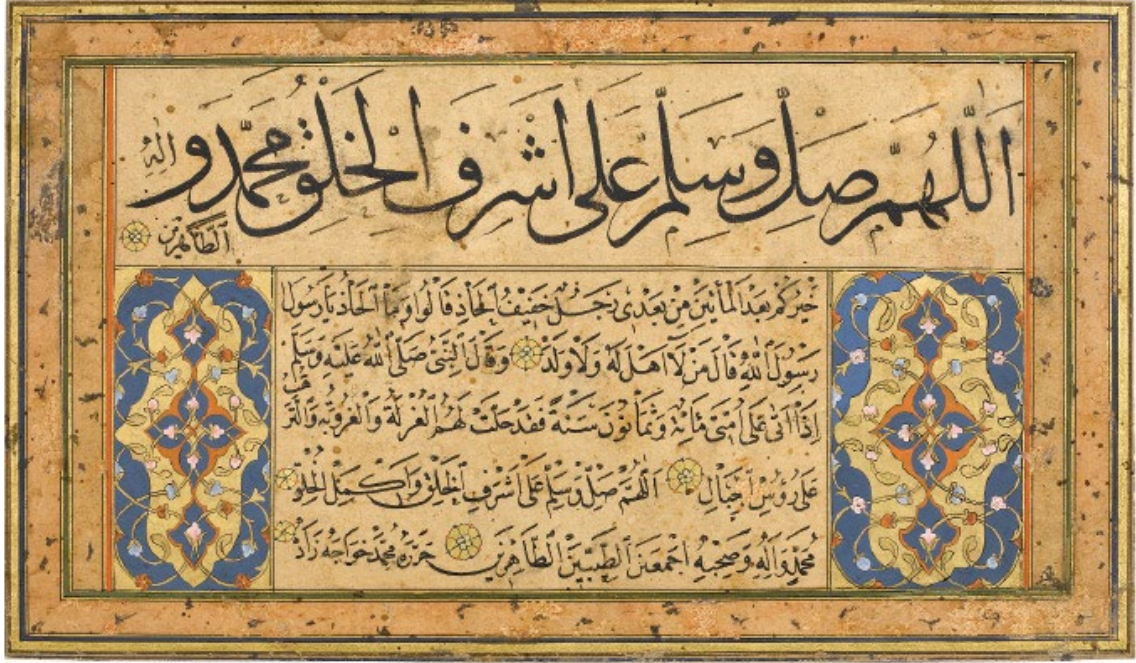 اللهم صل وسلم على اشرف الخلق محمد و اله
الطاهرين
خيركم بعد المأتين من بعدى رجل خفيف الحاذ قالوا وما الحاذ يا رسول
رسول الله قال من لا اهل له ولا ولد وقال النبى صلى الله عليه وسلم
اذا اتى على امتى مائة وثمانون سنة فقد حلت لهم العزلة والعزوبة والترهب
على رؤس الجبال اللهم صل وسلم على اشرف الخلق واكمل الخلق
محمد واله وصحبه اجمعين الطيبين الطاهرين حرره محمد خواجه زاده